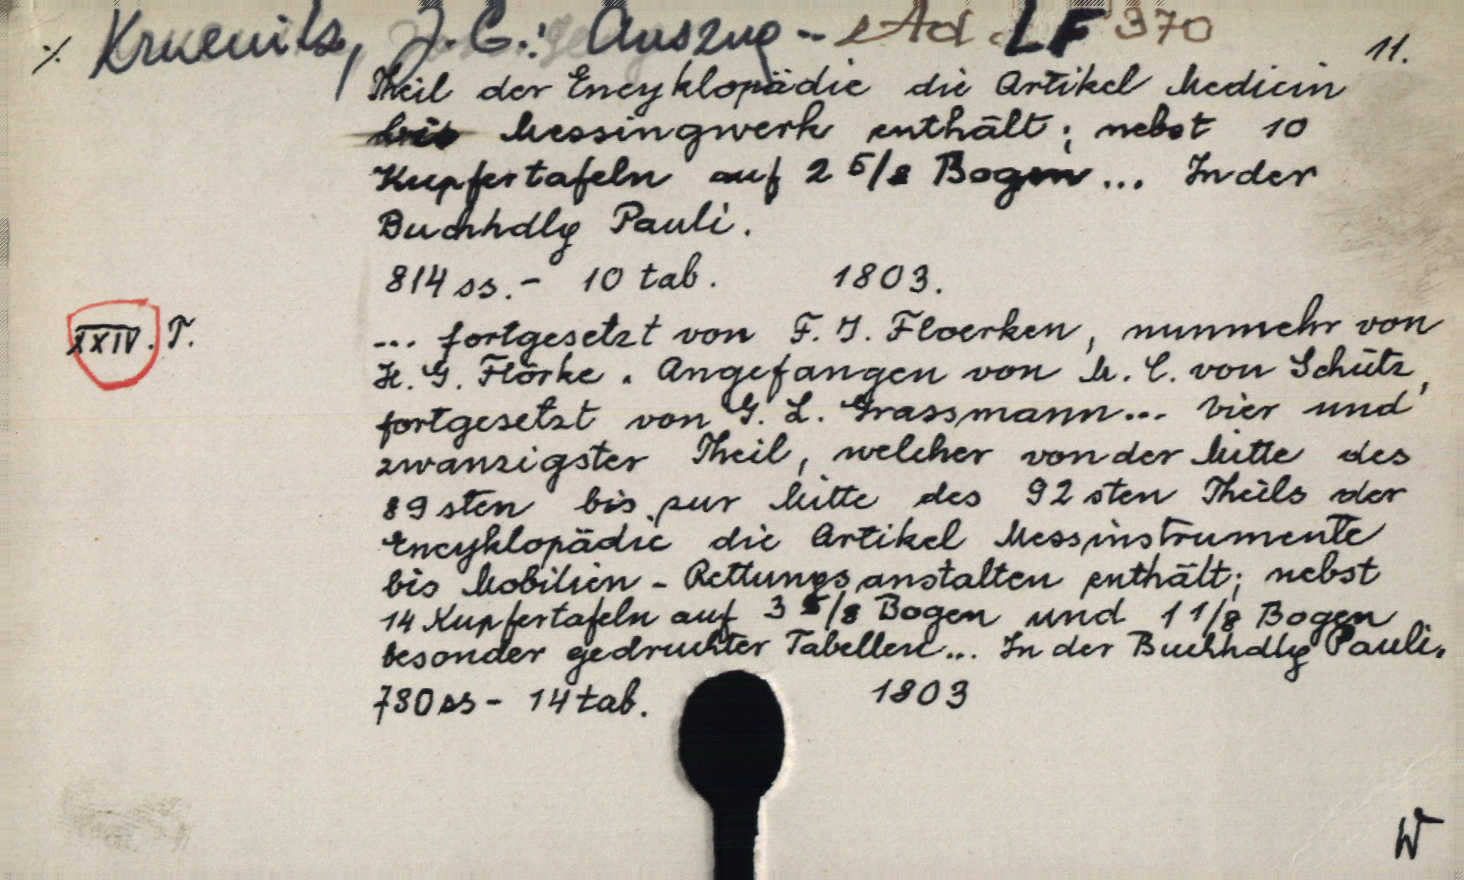 ./. Kruenitz, J. G.: Auszug - Ad. LF 370 11.
Theil der Encyklopädie die Artikel Medicin
bis Messingwerk enthält; nebst 10
Kupfertafeln auf 2 5/8 Bogen ... In der
Buchhdlg Pauli.
814 ss. - 10 tab. 1803.
XXIV. T. ... fortgesetzt von F. J. Floerken, nunmehr von
H. G. Flörke. Angefangen von M. C. von Schütz,
fortgesetzt von G. L. Grassmann... Vier und
zwanzigster Theil, welcher von der Mitte des
89sten bis zur Mitte des 92sten Theils der
Encyklopädie die Artikel Messinstrumente
bis Mobilien - Rettungsanstalten enthält; nebst
14 Kupfertafeln auf 3 5/8 Bogen und 1 1/8 Bogen
besonder gedruckter Tabellen... In der Buchhdlg Pauli.
730 ss - 14 tab. 1803
W